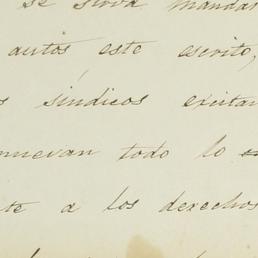 se sirva mandar
autos este escrito,
síndicos exitan
muevan todo lo
te a los derechos